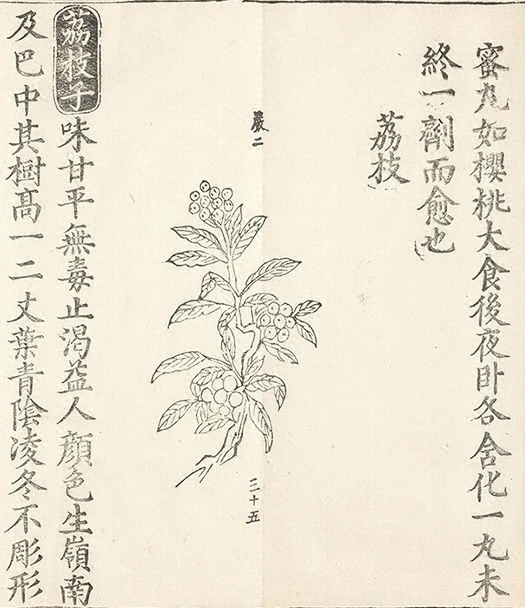 蜜丸如櫻桃大食後夜卧各含化一丸未
終一劑而愈也
荔枝
嚴二
三十五
荔枝子味甘平無毒止渴益人顔色生嶺南
及巴中其樹髙一二丈葉青陰凌冬不彫形